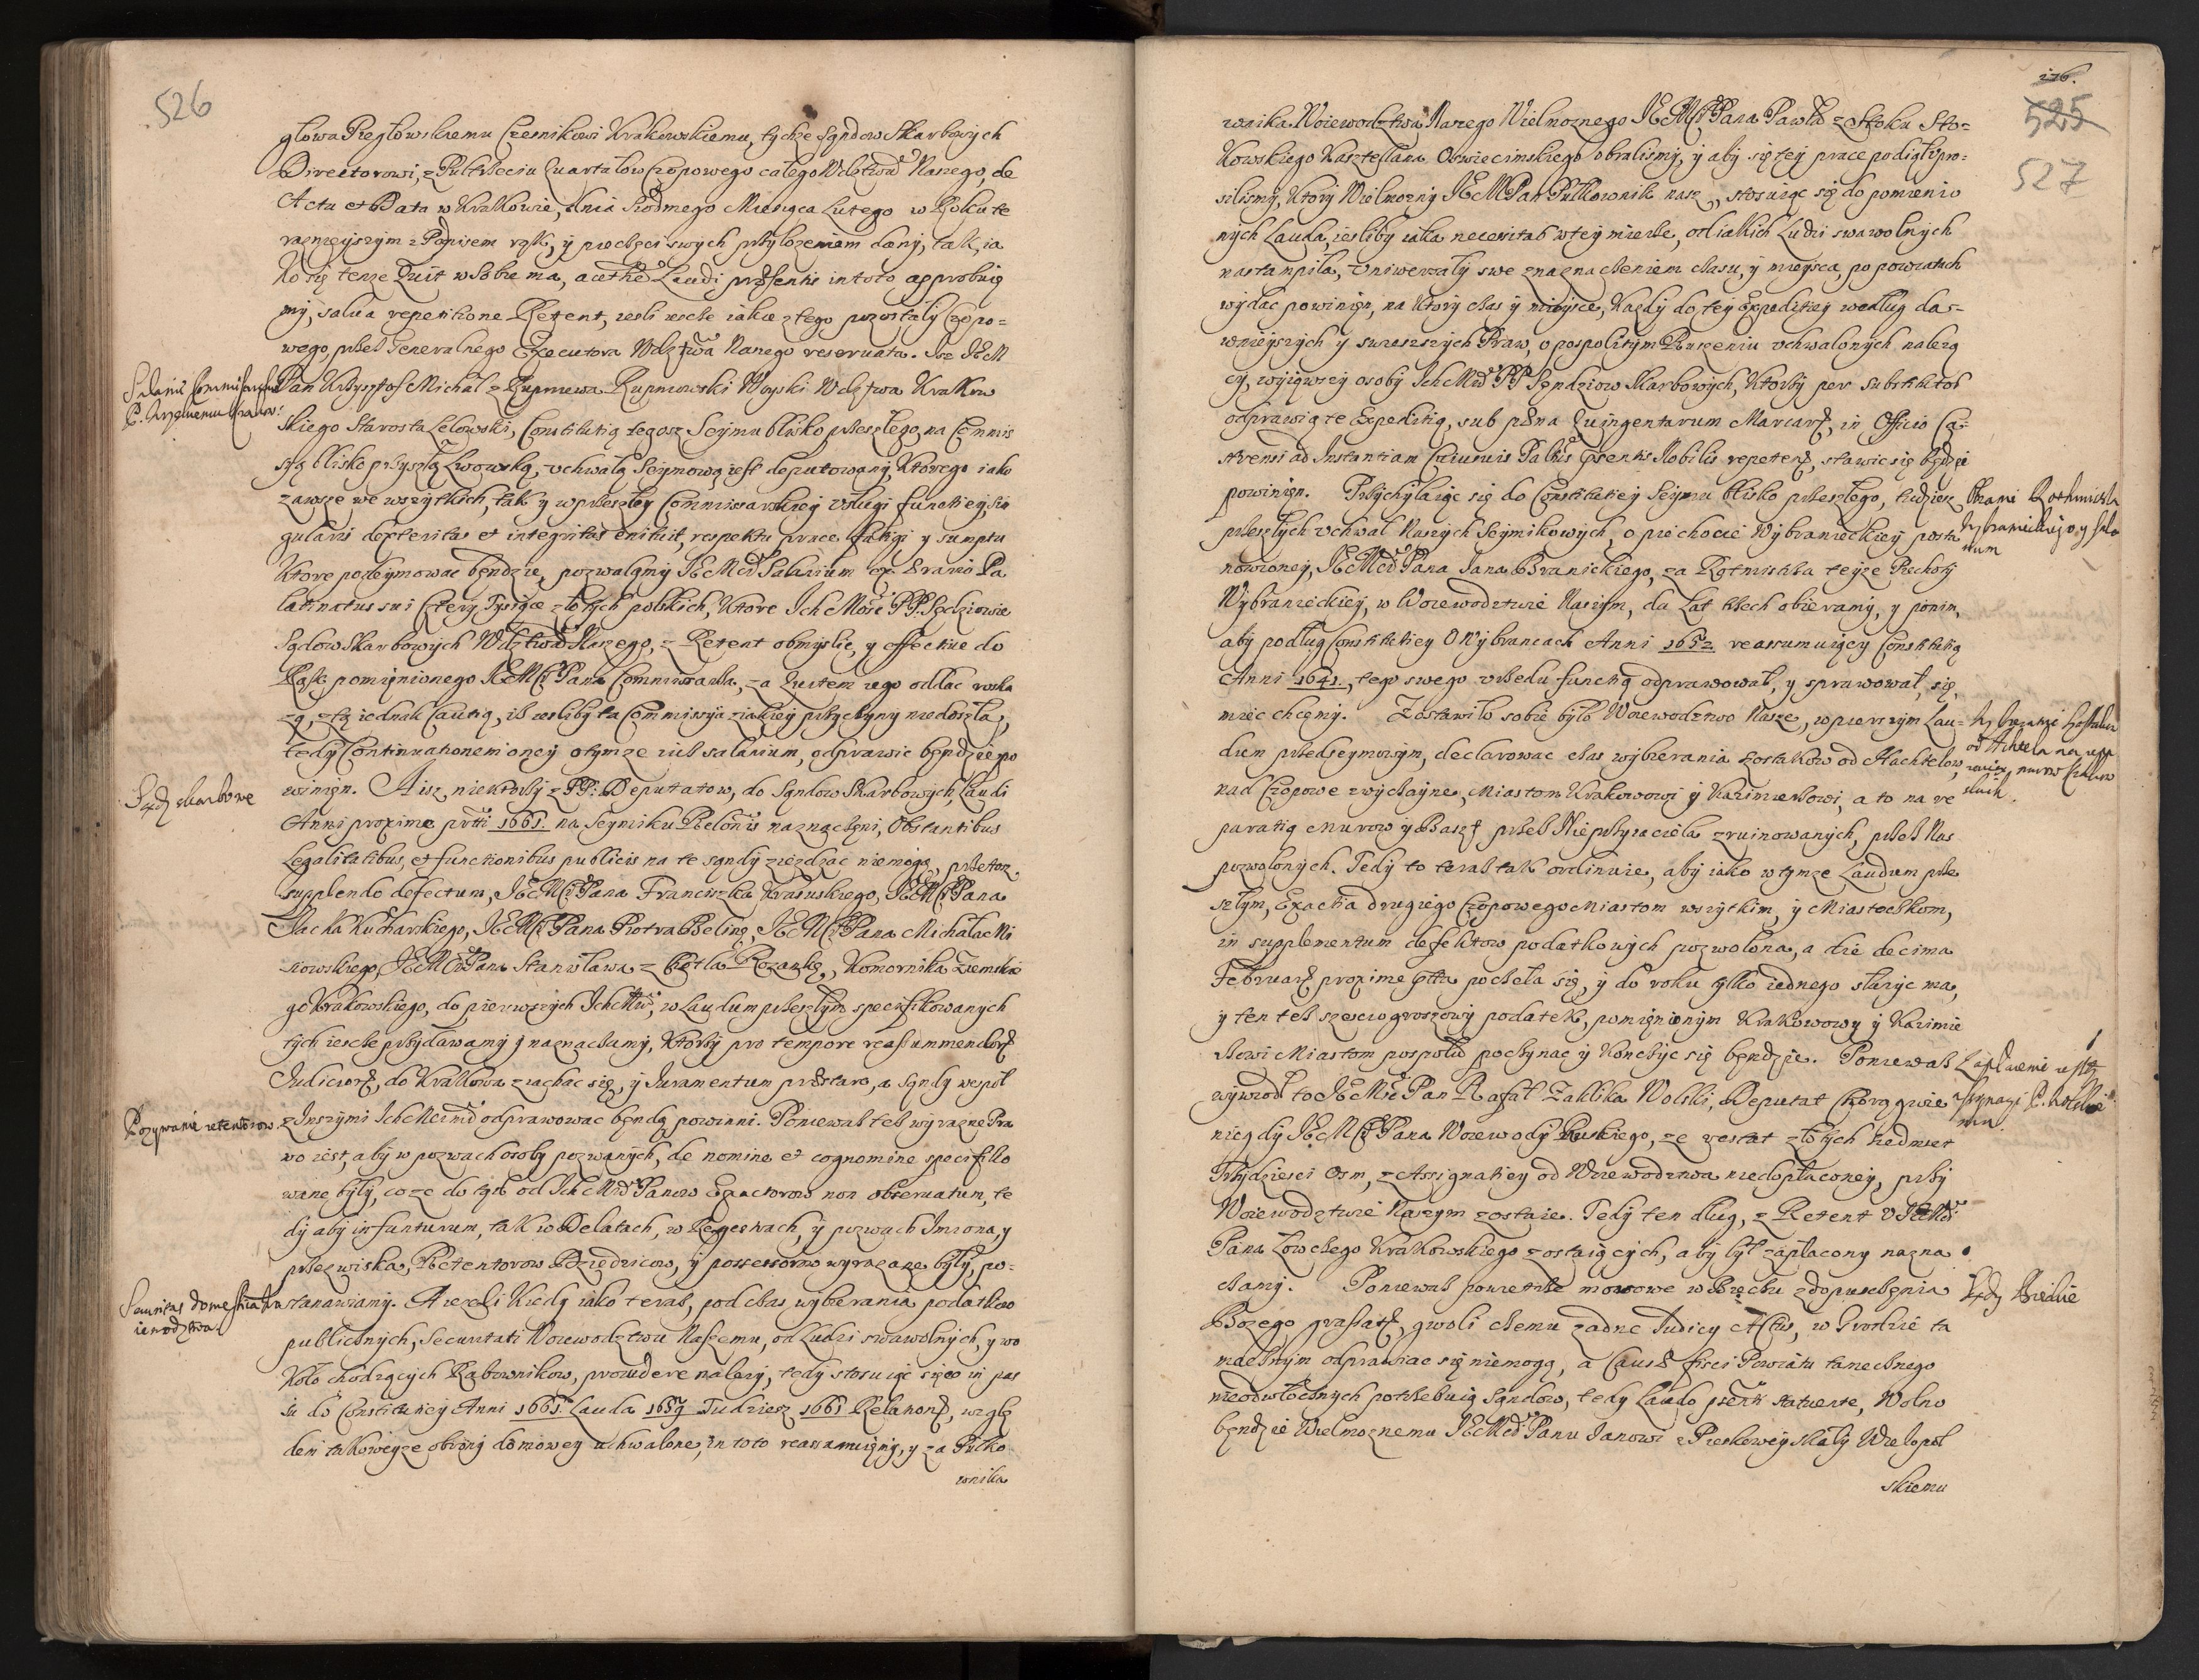 526
głowa Pręgłowskiemu Czesnikowi Krakowskiemu, tychze Sądow Skarbowych
Directorowi, z Pułtrzeciu Quartałow Czopowego całego Wdztwa Naszego, de
Actu et Data w Krakowie, dnia Siodmego Miesiąca Lutego w Roku te
raznieyszym z Podpisem rąk, y pieczęci swych przyłozeniem dany, tak, ia
ko się tenze Quit w Sobie ma, authe Laudi præsentis in toto approbuię
my, salua repetitione Retent, iesli iescze iakie z tego pozostały Czopo=
wego, przez Generalnego Executora Wdztwa Naszego reseruata. Isz JEM
Sedarii Commissarskie
P. Woyskiemu Krakow:
Pan Krzysztof Michał z Rupniewa Rupniowski Woyski Wdztwa Krakow
skiego Starosta Lelowski, Constitutią tegosz Seymu blisko przeszłego, na Commis
syą blisko przyszłą Lwowską, vchwałą Seymową iest deputowany, Ktorego iako
zawsze we wszytkich, tak y w przeszłey Commissarskiey vsługi functiey, sin
gularis dexteritas et integritas enituit, respektu prace, fatigi y sumptu
Ktore podeymowac będzie, pozwalamy JEMci Salarium ex ærario Pa
latinatus sui Cztery Tysiące złotych polskich, Ktore Ich Mosc PP. Sędziowie
Sądow Skarbowych Wdztwa Naszego, z Retent obmyslic, y effective do
Rąk pomienionego JEMci Pana Commissarza, za Quitem iego oddac maią
, z tą iednak Cautią, iz iesliby ta Commissya z iakiey przyczyny niedoszła,
tedy Continuationem oney otymze iusz salarium, odprawic będzie po
Sędź skarbowe
winien. A isz niektorzy z PP: Deputatow, do Sądow Skarbowych, Laudi
Anni proxime prtti 1661. na Seymiku Relonis naznaczeni, Obstantibus
Legalitatibus, et functionibus publicis na te sądy ziezdzac niemogą, przetoz
supplendo defectum, JEMci Pana Franciszka Krasuskiego, JEMci Pana
Jacka Kucharskiego, JEMci Pana Piotra Beling, JEMci Pana Michała Ni
siowskiego, JEMci Pana Stanisława z Kotla Rozankę, Komornika Ziemskie
go Krakowskiego, do pierwszych Ich Mciw, w Laudum przeszłym specifikowanych
tych iescze przydawamy y naznaczamy, Ktorzy pro tempore reassummendorum
Iudiciorum, do Krakowa ziachac się, y Iuramentum præstare, a sądy wespoł
Pozywanie retentorow
z Inszymi Ich Mciami odprawowac będą powinni. Poniewaz tesz wyrazne Pra
wo iest, aby w pozwach osoby pozwanych, de nomine et cognomine specifiko
wane były, coze do tych od Ich Mciw Panow Exactorow non obseruatum, te
dy aby in futurum, tak w Delatach, w Regestrach, y pozwach Imiona, y
przezwiska, Retentorow Dziedzicow, y possessorow wyrazane były, po=
Securitas domestica Wo
iewodztwa.
stanawiamy. A iezeli Kiedy iako teraz, podczas wybierania podatkow
publicznych, Securitati Woiewodztwu Naszemu, od Ludzi swawolnych, y wo
koło chodzących Rabownikow, prouidere nalezy, tedy stosuiąc się co in pas
su do Constitutiey Anni 1661. Lauda 1659 Tudziesz 1661 Relationum, wzglę
dem takoweyze obrony domowey uchwalone, in toto reassumuiemy, y za Pułko
wnika

276.
525
527
wnika Woiewodztwa Naszego Wielmoznego JEMci Pana Pawła z Stoku Sto=
kowskiego Kasztellana Oswiecimskiego obralismy, y aby się tey prace podiął vpro=
silismy, Ktory Wielmozny JEMPan Pułkownik nasz, stosuiąc się do pomienio
nych Lauda, iesliby iaka necessitas w tey mierze, od iakich Ludzi swawolnych
nastąmpiła, Vniwersały swe z naznaczeniem czasu, y mieysca, po powiatach
wydac powinien, na Ktory czas y mieysce, Kazdy do tey Expeditiey według da=
wnieyszych y swieszszych Praw, o pospolitym Ruszeniu vchwalonych nalezą
cy, wyiąwszy osoby Ich Mciw PP. Sędziow Skarbowych, Ktorzy per substitutos
odprawią te Expeditią, sub pæna Quingentarum Marcarum, in Officio Ca=
strensi ad Instantiam Cuiusuis Palatus præsentis Nobilis repetenda, stawic się będzie
powinien. Przychylaiąc się do Constitutiey Seymu blisko przeszłego, tudziesz
przeszłych vchwał Naszych Seymikowych, o piechocie Wybranieckiey posta
Obranie Rothmistrza
Wybranieckiego, y Sala
rium
nowioney, JEMci Pana Jana Branickiego, za Rotmistrza teyze Piechoty
Wybranieckiey, w Woiewodztwie Naszym, do Lat trzech obieramy, y ponim,
aby podług Constitutiey O Wybrancach Anni 1652 reassumuiący Constitutią
Anni 1641., tego swego vrzędu functią odprawował, y sprawował się,
miec chcemy. Zostawiło sobie było Woiewodztwo Nasze, w pierwszym Lau=
dum przedseymowym, declarowac czas wybierania szostakow od Achtelow,
nad Czopowe zwyczayne, Miastom Krakowowi y Kazimierzowi, a to na re
Wybieranie Szostakow
od Achtela na repa
racią murow Krakow
skich.
paratią Murow y Baszt przez Nieprzyiaciela zruinowanych, przez Nas
pozwolonych. Tedy to teraz tak ordinuie, aby iako w tymze Laudum prze
szłym, Exactia drugiego Czopowego Miastom wszytkim, y Miasteczkom,
in supplementum defektow podatkowych pozwolona, a die decima
Februarii proxime præteriti poczęła się, y do roku tylko iednego słuzyc ma,
y ten tesz szesciogroszowy podatek, pomienionym Krakowowi y Kazimie
rzowi Miastom pospołu poczynac y Konczyc się będzie. Poniewasz
Zapłacenie reszty
wywiodł to JEMsc Pan Rafał Zaklika Wolski, Deputat Chorągwie
niegdy JEMci Pana Woiewody Ruskiego, ze restat złotych siedmset
Trzydziesci Osm, z Assignatiey od Woiewodztwa niedopłaconey, przy
Woiewodztwie Naszym zostaie. Tedy ten dług, z Retent v JEMci
Pana Łowczego Krakowskiego zostaiących, aby był zapłacony nazna
czamy. Poniewasz powietrze morowe w Bieczu z dopuszczenia
Sędy Bieckie
Bozego grassatur, gwoli czemu zadne Iudicy Actus, w Grodzie ta
mecznym odprawiac się niemogą, a Causæ fisci Powiatu tamecznego
nieodwłocznych potrzebuią Sądow, tedy Laudo præsenti statuente, Wolno
będzie Wielmoznemu JEMci Panu Janowi z Pieskowey Skały Wielopol
skiemu